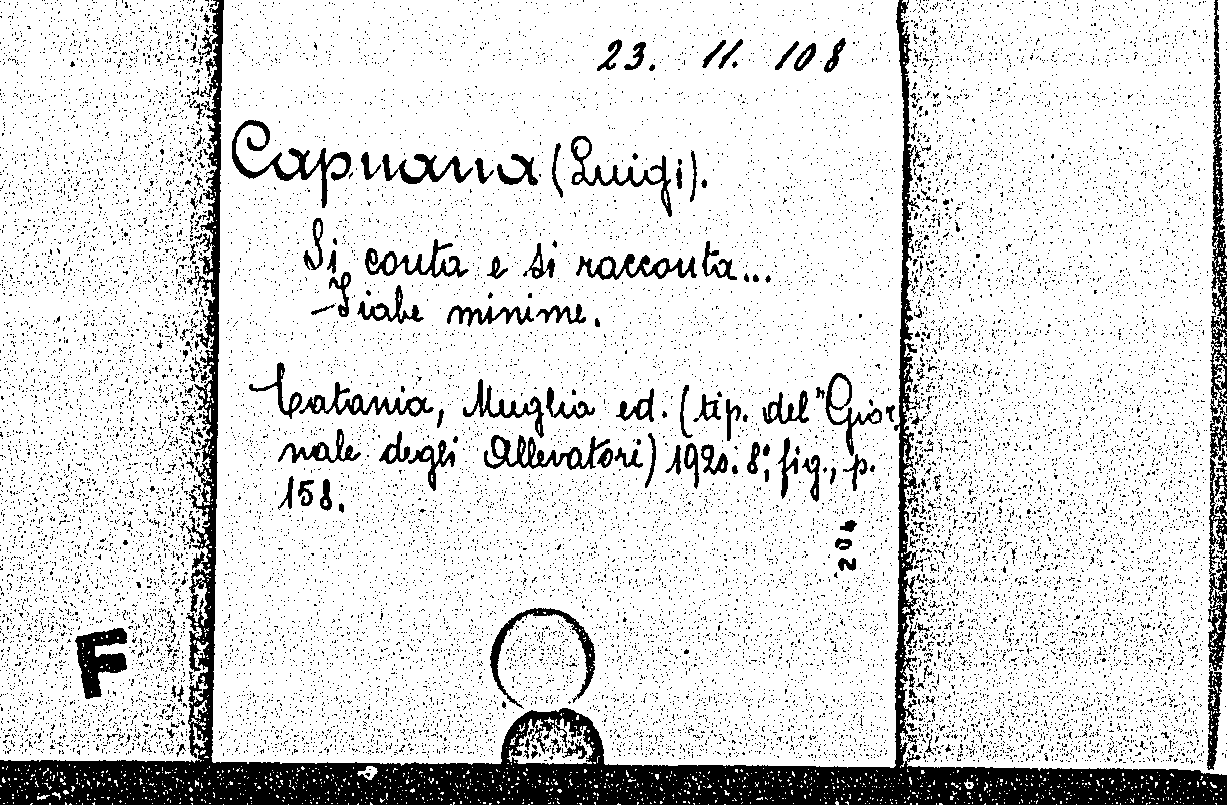 23. 11. 108
Capuana (Luigi).
Si conta e si racconta...
Fiabe minime.
Catania, Muglia ed. (tip. del "Gior-
nale degli Allevatori) 1920. 8°, fig., p.
158.
204
F